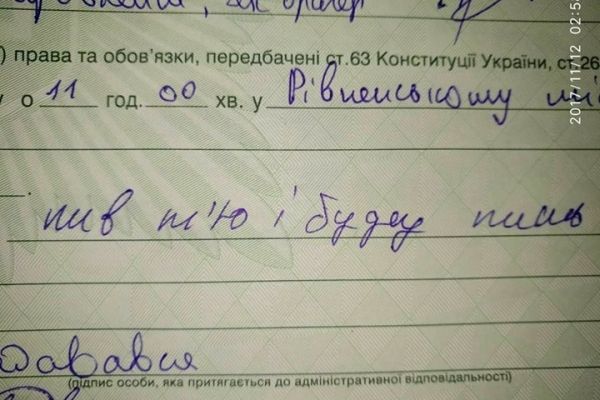 ) права та обов'язки, передбачені ст.63 Конституції України, ст.26
о 11 год. 00 хв. у Рівненському мі
2017/11/12 02:5
пив п'ю і буду пить
(підпис особи, яка притягається до адміністративної відповідальності)